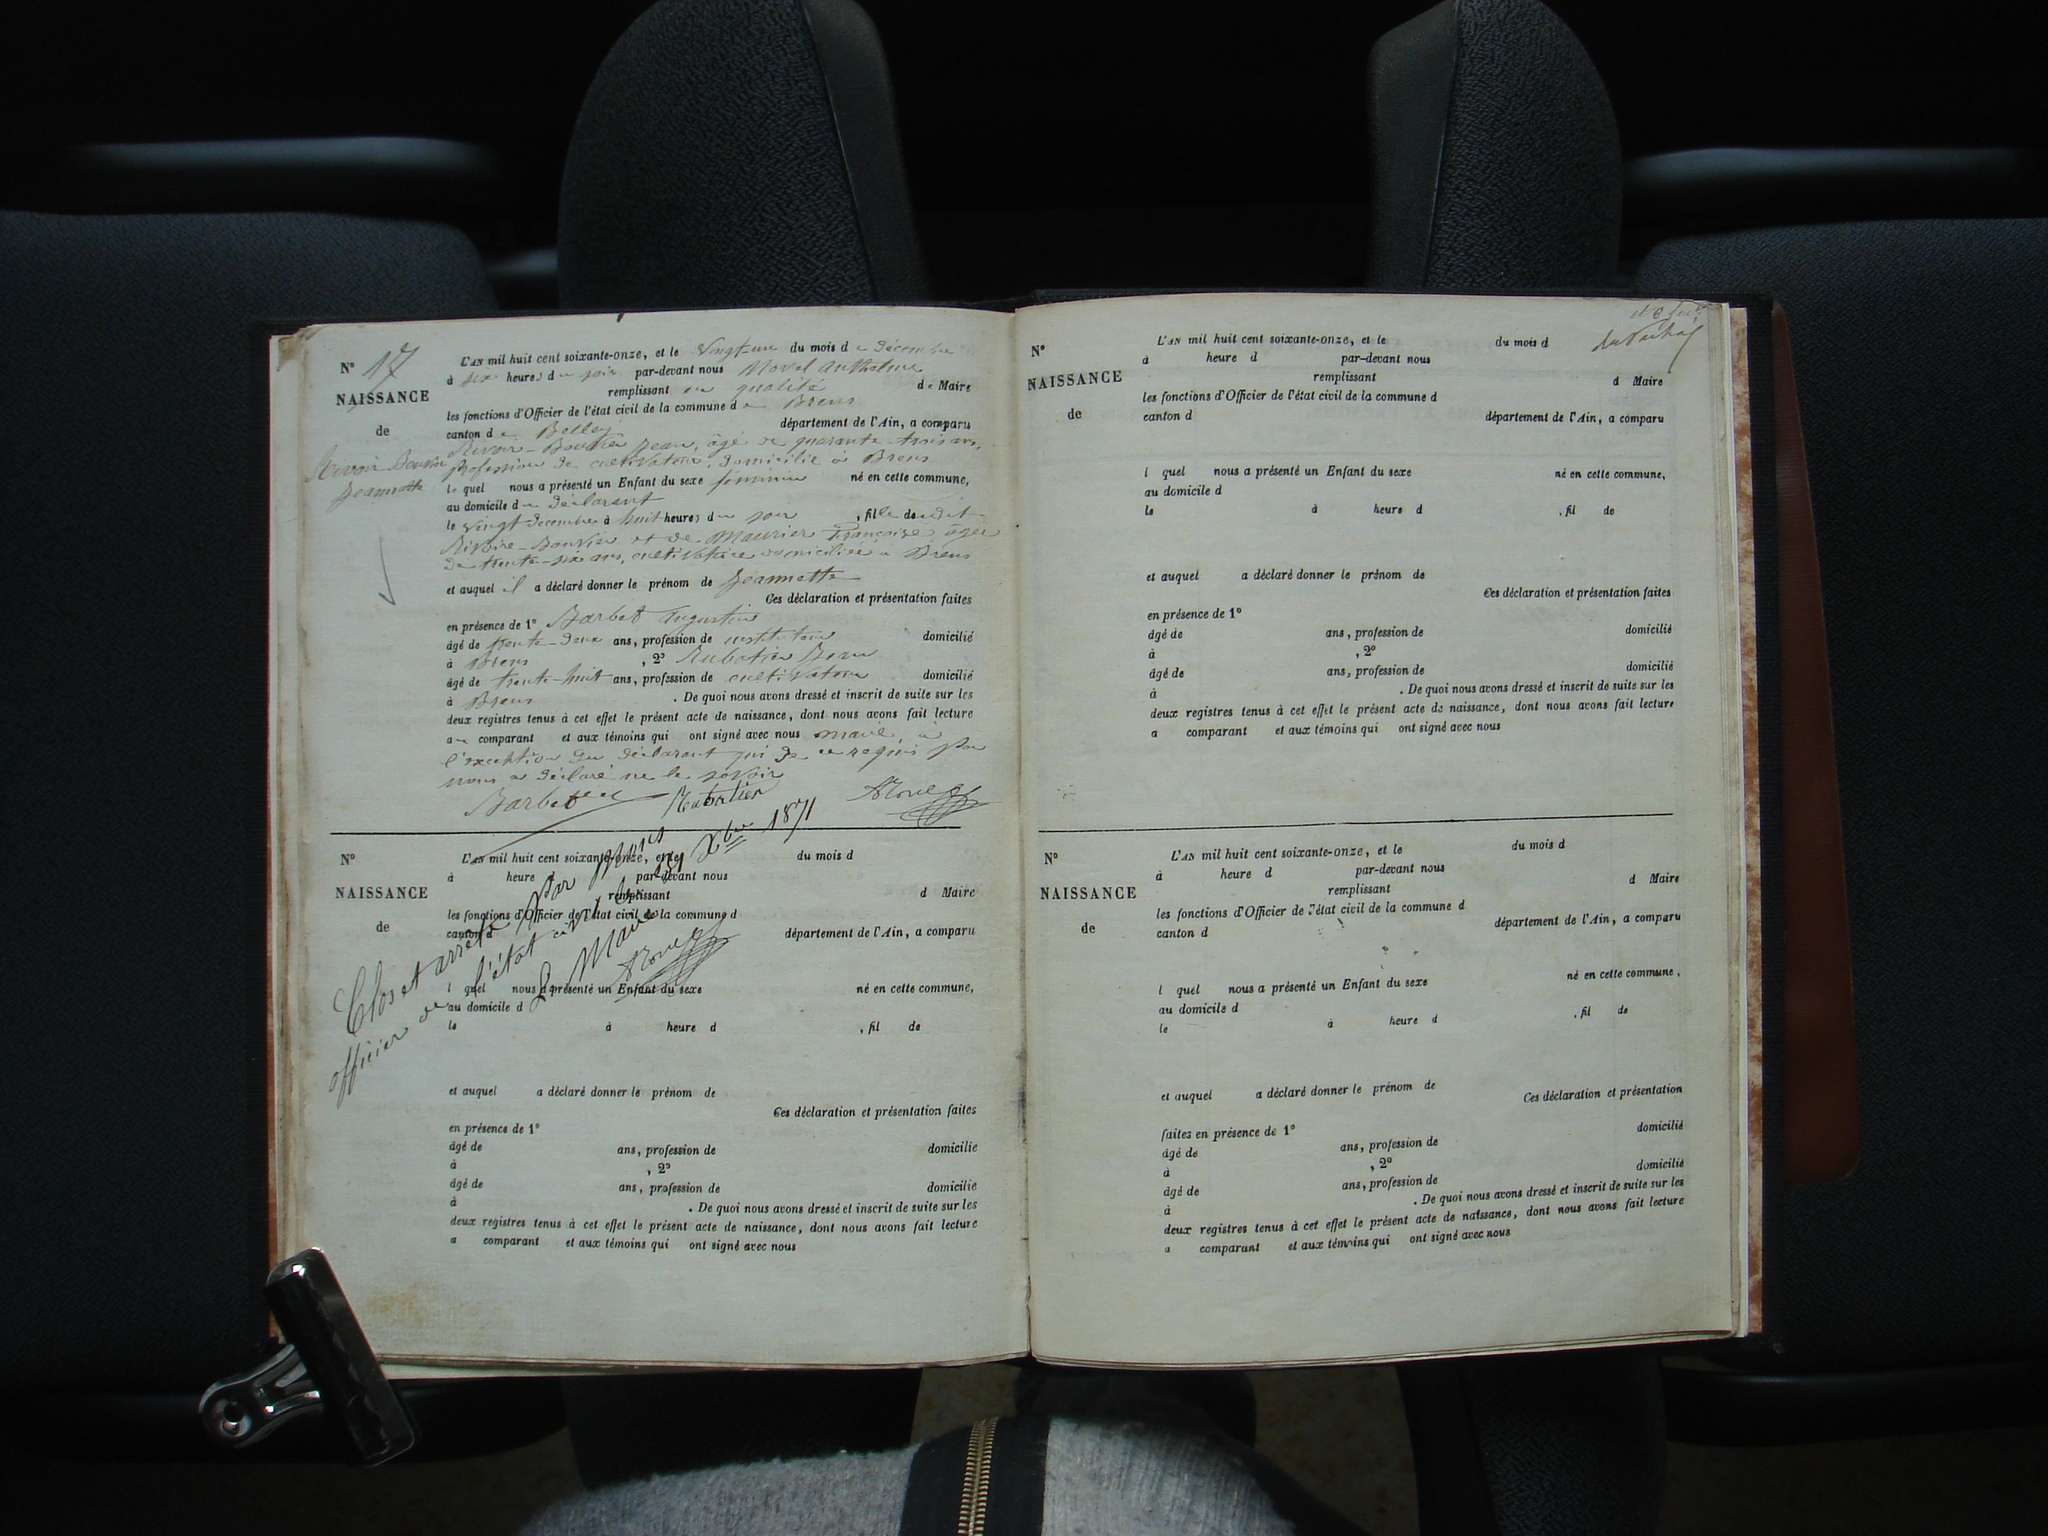 N° 17
NAISSANCE
de
Rivoire-Bouvier
Jeannette
L'AN mil huit cent soixante-onze, et le vingt-un du mois de Décembre
à six heures du soir par-devant nous Morel Anthelme
remplissant en qualité de Maire
les fonctions d'Officier de l'état civil de la commune de Brens
canton de Belley département de l'Ain, a comparu
Rivoire-Bouvier Jean, âgé de quarante-trois ans,
profession de cultivateur, domicilié à Brens
lequel nous a présenté un Enfant du sexe féminin né en cette commune,
au domicile du déclarant
le vingt Décembre à huit heures du soir, fille dudit
Rivoire-Bouvier et de Meurier Françoise, âgée
de trente-six ans, cultivatrice domiciliée à Brens
et auquel il a déclaré donner le prénom de Jeannette
Ces déclaration et présentation faites
en présence de 1° Barbet Augustin
âgé de trente-deux ans, profession de instituteur domicilié
à Brens, 2° Rubatier Jean
âgé de trente-huit ans, profession de cultivateur domicilié
à Brens. De quoi nous avons dressé et inscrit de suite sur les
deux registres tenus à cet effet le présent acte de naissance, dont nous avons fait lecture
au comparant et aux témoins qui ont signé avec nous maire, à
l'exception du déclarant qui de ce requis par
nous a déclaré ne le savoir
Barbet Rubatier AMorel
N°
NAISSANCE
de
L'AN mil huit cent soixante-onze, et le du mois d
à heure d par-devant nous
remplissant d Maire
les fonctions d'Officier de l'état civil de la commune d
canton d département de l'Ain, a comparu
l quel nous a présenté un Enfant du sexe né en cette commune,
au domicile d
le à heure d , fil de
et auquel a déclaré donner le prénom de
Ces déclaration et présentation faites
en présence de 1°
âgé de ans, profession de domicilié
à , 2°
âgé de ans, profession de domicilié
à . De quoi nous avons dressé et inscrit de suite sur les
deux registres tenus à cet effet le présent acte de naissance, dont nous avons fait lecture
a comparant et aux témoins qui ont signé avec nous
Clos et arrêté par nous
officier de l'état civil le 31 Xbre 1871
Le Maire
AMorel
N°
NAISSANCE
de
L'AN mil huit cent soixante-onze, et le du mois d
à heure d par-devant nous
remplissant d Maire
les fonctions d'Officier de l'état civil de la commune d
canton d département de l'Ain, a comparu
l quel nous a présenté un Enfant du sexe né en cette commune,
au domicile d
le à heure d , fil de
et auquel a déclaré donner le prénom de
Ces déclaration et présentation faites
en présence de 1°
âgé de ans, profession de domicilié
à , 2°
âgé de ans, profession de domicilié
à . De quoi nous avons dressé et inscrit de suite sur les
deux registres tenus à cet effet le présent acte de naissance, dont nous avons fait lecture
a comparant et aux témoins qui ont signé avec nous
N°
NAISSANCE
de
L'AN mil huit cent soixante-onze, et le du mois d
à heure d par-devant nous
remplissant d Maire
les fonctions d'Officier de l'état civil de la commune d
canton d département de l'Ain, a comparu
l quel nous a présenté un Enfant du sexe né en cette commune,
au domicile d
le à heure d , fil de
et auquel a déclaré donner le prénom de
Ces déclaration et présentation
faites en présence de 1° domicilié
âgé de ans, profession de
à , 2° domicilié
âgé de ans, profession de
à . De quoi nous avons dressé et inscrit de suite sur les
deux registres tenus à cet effet le présent acte de naissance, dont nous avons fait lecture
a comparant et aux témoins qui ont signé avec nous